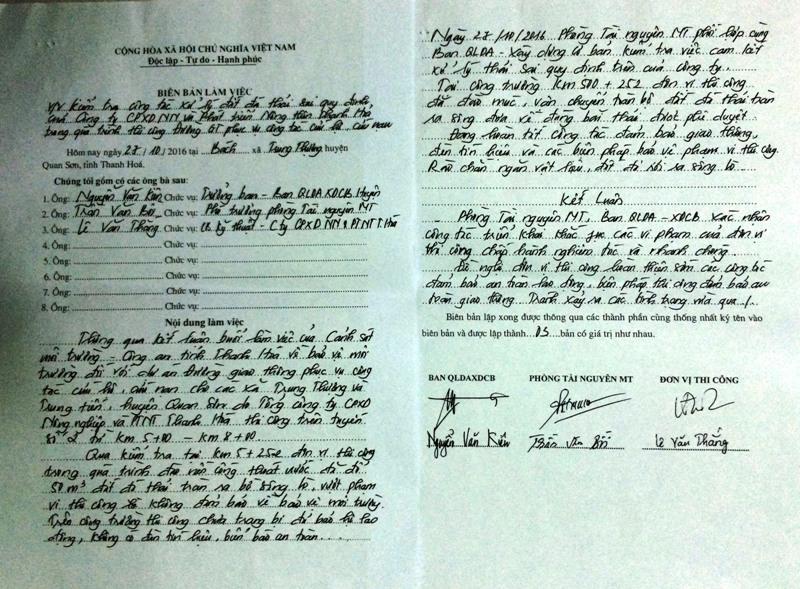 CỘNG HÒA XÃ HỘI CHỦ NGHĨA VIỆT NAM
Độc lập - Tự do - Hạnh phúc
BIÊN BẢN LÀM VIỆC
V/v Kiểm tra công tác xử lý đất đá thải sai quy định,
của Công ty CPXD NN và Phát triển Nông thôn Thanh Hóa
trong quá trình thi công đường GT phục vụ công tác cứu hộ cứu nạn
Hôm nay ngày 27 / 10 / 2016 tại ... xã Trung Thượng huyện
Quan Sơn, tỉnh Thanh Hoá.
Chúng tôi gồm có các ông bà sau:
1. Ông: Nguyễn Văn Kiên Chức vụ: Trưởng ban - Ban QLDA XDCB Huyện
2. Ông: Trần Văn ... Chức vụ: Phó trưởng phòng Tài nguyên MT
3. Ông: Lê Văn Thắng Chức vụ: Cb kỹ thuật - Cty CPXD NN & PTNT T. Hóa
4. Ông: Chức vụ:
5. Ông: Chức vụ:
6. Ông: Chức vụ:
7. Ông: Chức vụ:
8. Ông: Chức vụ:
Nội dung làm việc
Thông qua kết luận buổi làm việc của Cảnh sát
môi trường - Công an tỉnh Thanh Hóa về bảo vệ môi
trường đối với dự án đường giao thông phục vụ công
tác cứu hộ, cứu nạn cho các xã Trung Thượng và
Trung tiến, huyện Quan Sơn do Tổng công ty CPXD
Nông nghiệp và PTNT Thanh Hóa thi công trên tuyến
số 2 từ Km 5+00 - Km 8+00
Qua kiểm tra tại Km 5 + 252 đơn vị thi công
trong quá trình đào rãnh cống thoát nước đã đổ
50 m³ đất đá thải tràn ra bờ sông lò, vượt phạm
vi thi công là không đảm bảo về bảo vệ môi trường.
Trên công trường thi công chưa trang bị đủ bảo hộ lao
động, không có đèn tín hiệu, biển báo an toàn
Ngày 27/10/2016 Phòng Tài nguyên MT phối hợp cùng
Ban QLDA - Xây dựng cơ bản kiểm tra việc cam kết
xử lý thải sai quy định trên của công ty.
Tại công trường Km 500 + 252 đơn vị thi công
đã đào múc, vận chuyển toàn bộ đất đá thải tràn
ra sông đưa về đúng bãi thải được phê duyệt
Đang hoàn tất công tác đảm bảo giao thông,
đèn tín hiệu và các biện pháp bảo vệ phạm vi thi công
Rào chắn ngăn vật liệu, đất đá rơi ra sông lò
Kết Luận
Phòng Tài nguyên MT, Ban QLDA - XDCB xác nhận
công tác triển khai khắc phục các vi phạm của đơn vị
thi công chấp hành nghiêm túc và nhanh chóng.
Đề nghị đơn vị thi công hoàn thiện sớm các công tác
đảm bảo an toàn lao động, biện pháp thi công đảm bảo an
toàn giao thông. Tránh xảy ra các tình trạng vừa qua ./.
Biên bản lập xong được thông qua các thành phần cùng thống nhất ký tên vào
biên bản và được lập thành 03 bản có giá trị như nhau.
BAN QLDAXDCB PHÒNG TÀI NGUYÊN MT ĐƠN VỊ THI CÔNG
Nguyễn Văn Kiên Trần Văn ... Lê Văn Thắng